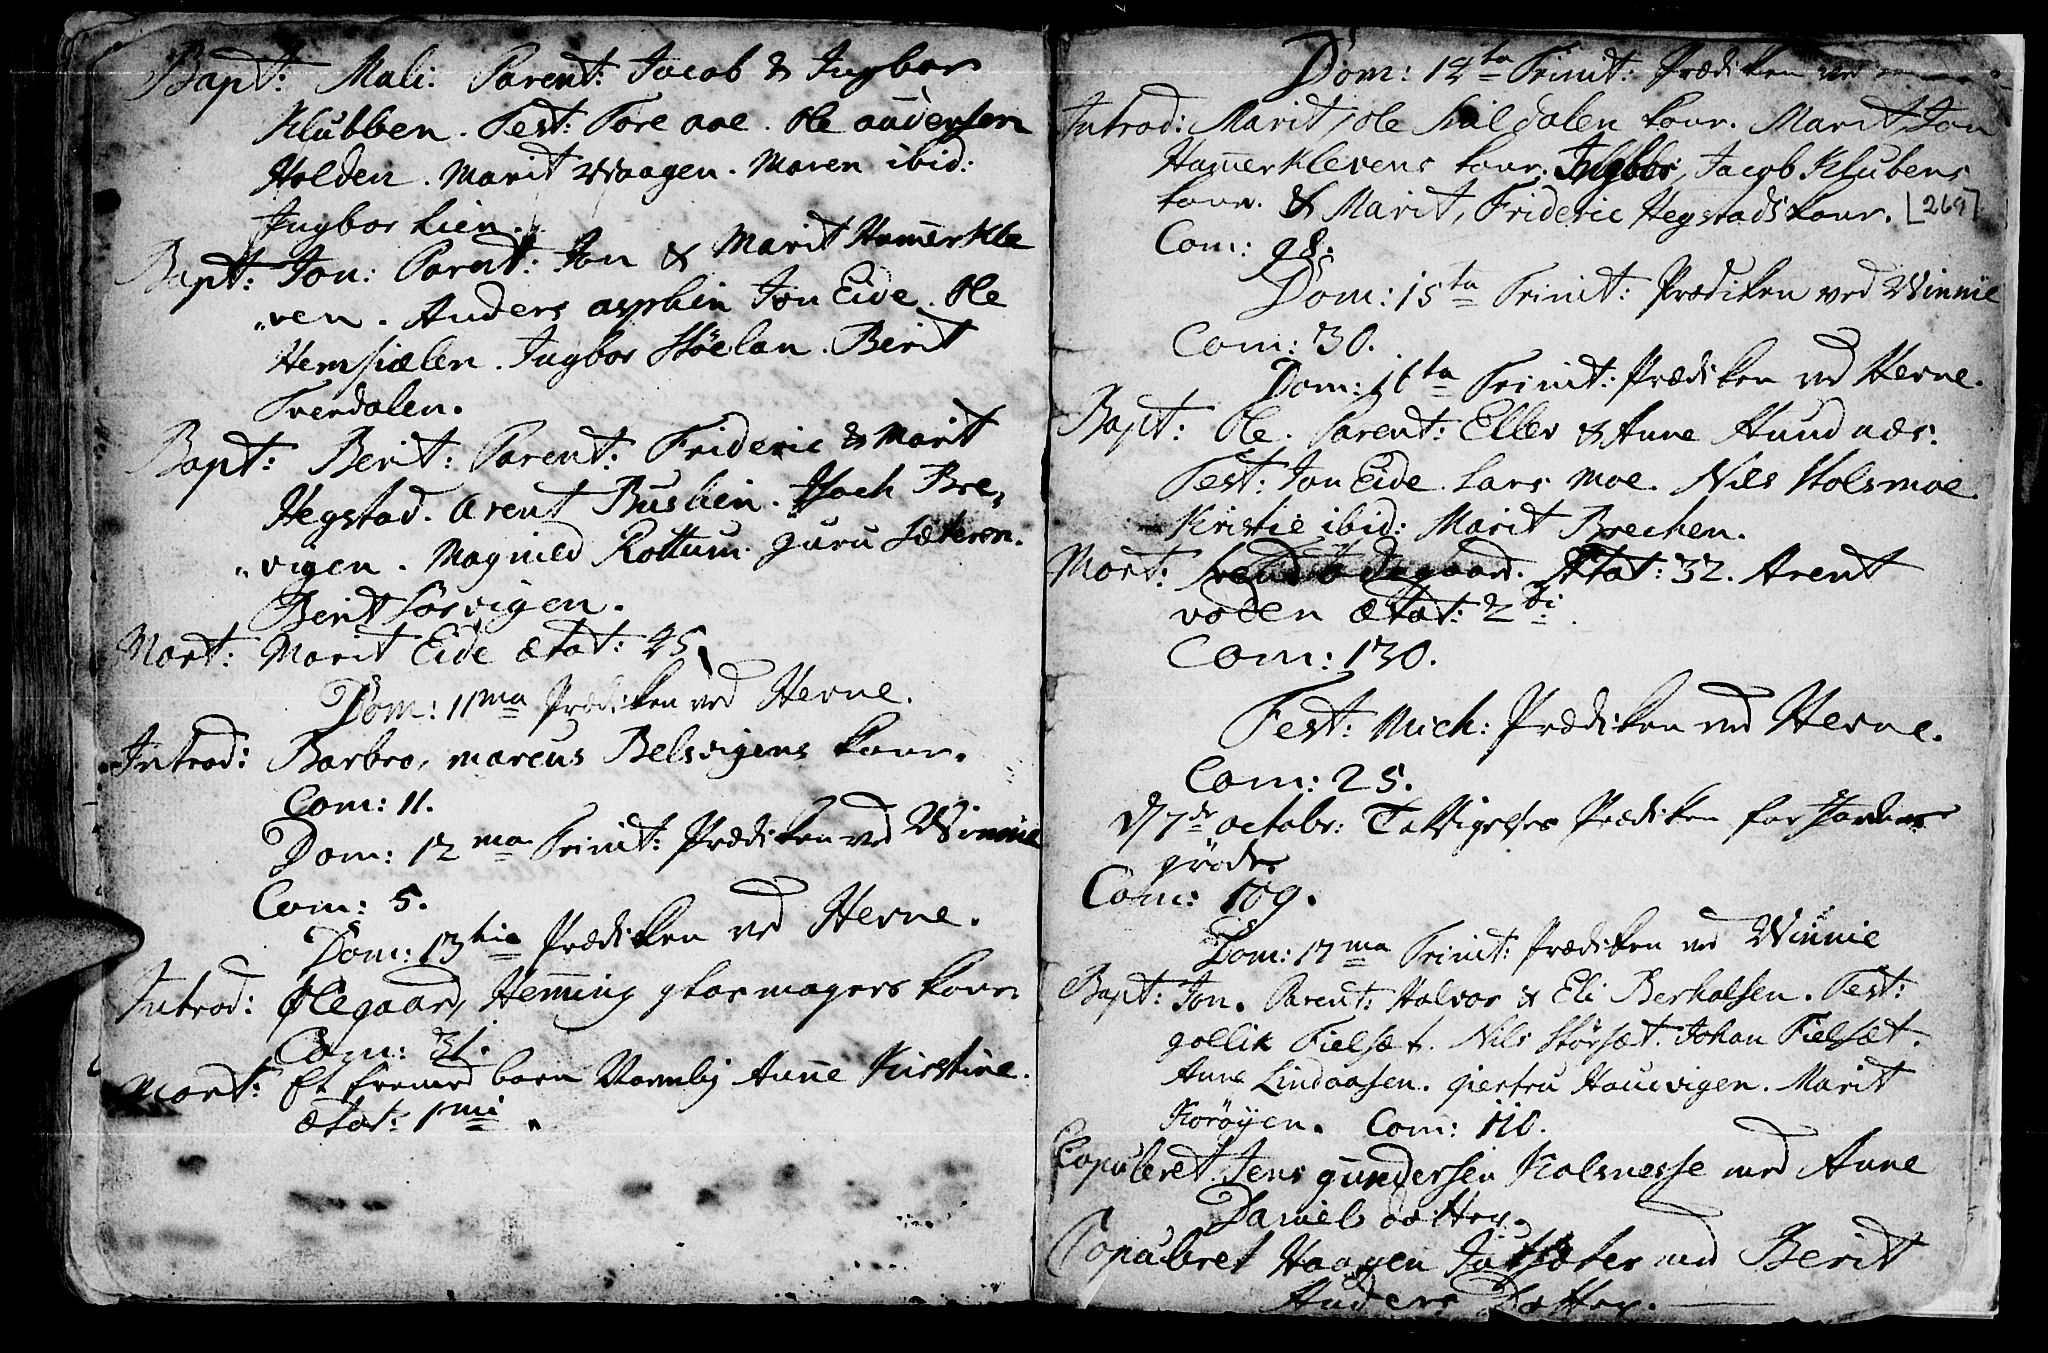 Bapt: Mali: Parent: Jacob & Ingbor
Klubben. Test: Tore aae. Ole andersen
Holden. Marit Waagen. Maren ibid:
Ingbor Lien.
Bapt: Jon: Parent: Jon & Marit Ham̄erkle
„ven. Anders Jon Eide. Ole
Hemsiælen. Ingbor Støelan. Berit
Tverdalen.
Bapt: Berit: Parent: Frideric & Marit
Hegstad. Arent Buslien. Isach Bre„
„vigen. Magnild Rottum. guru Sæteren.
Berit Corvigen.
Mort: Marit Eide ætat: 45.
Dom: 11ma Prædiken ved Hevne.
Introd: Barbro, marcus Belsvigens konr.
Com: 11.
Dom: 12ma Trinit: Prædiken ved Winnie
Com: 5.
Dom: 13tia Prædiken ved Hevne.
Introd: Olegaard, Hem̄ing glasmagers konr.
Com: 31.
Mort: Et fremed barn Navnlig Anne Kirstine.
ætat: 1mi.
Dom: 14ta Trinit: Prædiken ved
Introd: Marit, Ole konr. Marit, Jon
Ham̄erklevens konr. Ingbor, Jacob Klubens
konr. & Marit, Frideric Hegstads konr. 269
Com: 98.
Dom: 15ta Trinit: Prædiken ved Winnie
Com: 30.
Dom: 16ta Trinit: Prædiken ved Hevne.
Bapt: Ole. Parent: Eller & Anne Hundnæs.
Test: Jon Eide. Lars Moe. Nils Holsmoe.
Kristie ibid: Marit Brechen.
Mort: Ætat: 32. Arent
voden ætat: 2di.
Com: 130.
Fest: Mich: Prædiken ved Hevne.
Com: 25.
d 7de octobr: Taksigelses Prædiken for Jordens
grøde
Com: 109.
Dom: 17ma Trinit: Prædiken ved Winnie
Bapt: Jon. Parent: Halvor & Eli Berhalsen. Test:
gollik Fielsæt. Nils Størsæt. Johan Fielsæt.
Anne Lindaasen. giertru Haucvigen. Marit
Korøyen. Com: 110.
Copuleret Jens gundersen Kalsnesse med Anne
Daniels dotter.
Copuleret Haagen med Berit
Anders Dotter.